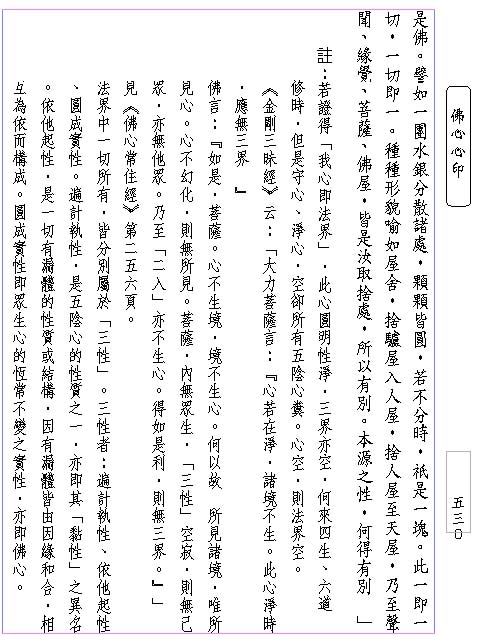 佛心心印
五三○
是佛。譬如一團水銀分散諸處，顆顆皆圓，若不分時，祇是一塊。此一即一
切，一切即一。種種形貌喻如屋舍，捨驢屋入人屋，捨人屋至天屋，乃至聲
聞、緣覺、菩薩、佛屋，皆是汝取捨處，所以有別。本源之性，何得有別　」
註：若證得「我心即法界」，此心圓明性淨，三界亦空，何來四生、六道
修時，但是守心、淨心，空卻所有五陰心糞。心空，則法界空。
《金剛三昧經》云：「大力菩薩言：『心若在淨，諸境不生。此心淨時
，應無三界　』
佛言：『如是，菩薩。心不生境，境不生心。何以故　所見諸境，唯所
見心。心不幻化，則無所見。菩薩，內無眾生，「三性」空寂，則無己
眾，亦無他眾。乃至「二入」亦不生心。得如是利，則無三界。』」
見《佛心常住經》第二五六頁。
法界中一切所有，皆分別屬於「三性」。三性者：遍計執性、依他起性
、圓成實性。遍計執性，是五陰心的性質之一，亦即其「黏性」之異名
。依他起性，是一切有漏體的性質或結構，因有漏體皆由因緣和合，相
互為依而構成。圓成實性即眾生心的恆常不變之實性，亦即佛心。